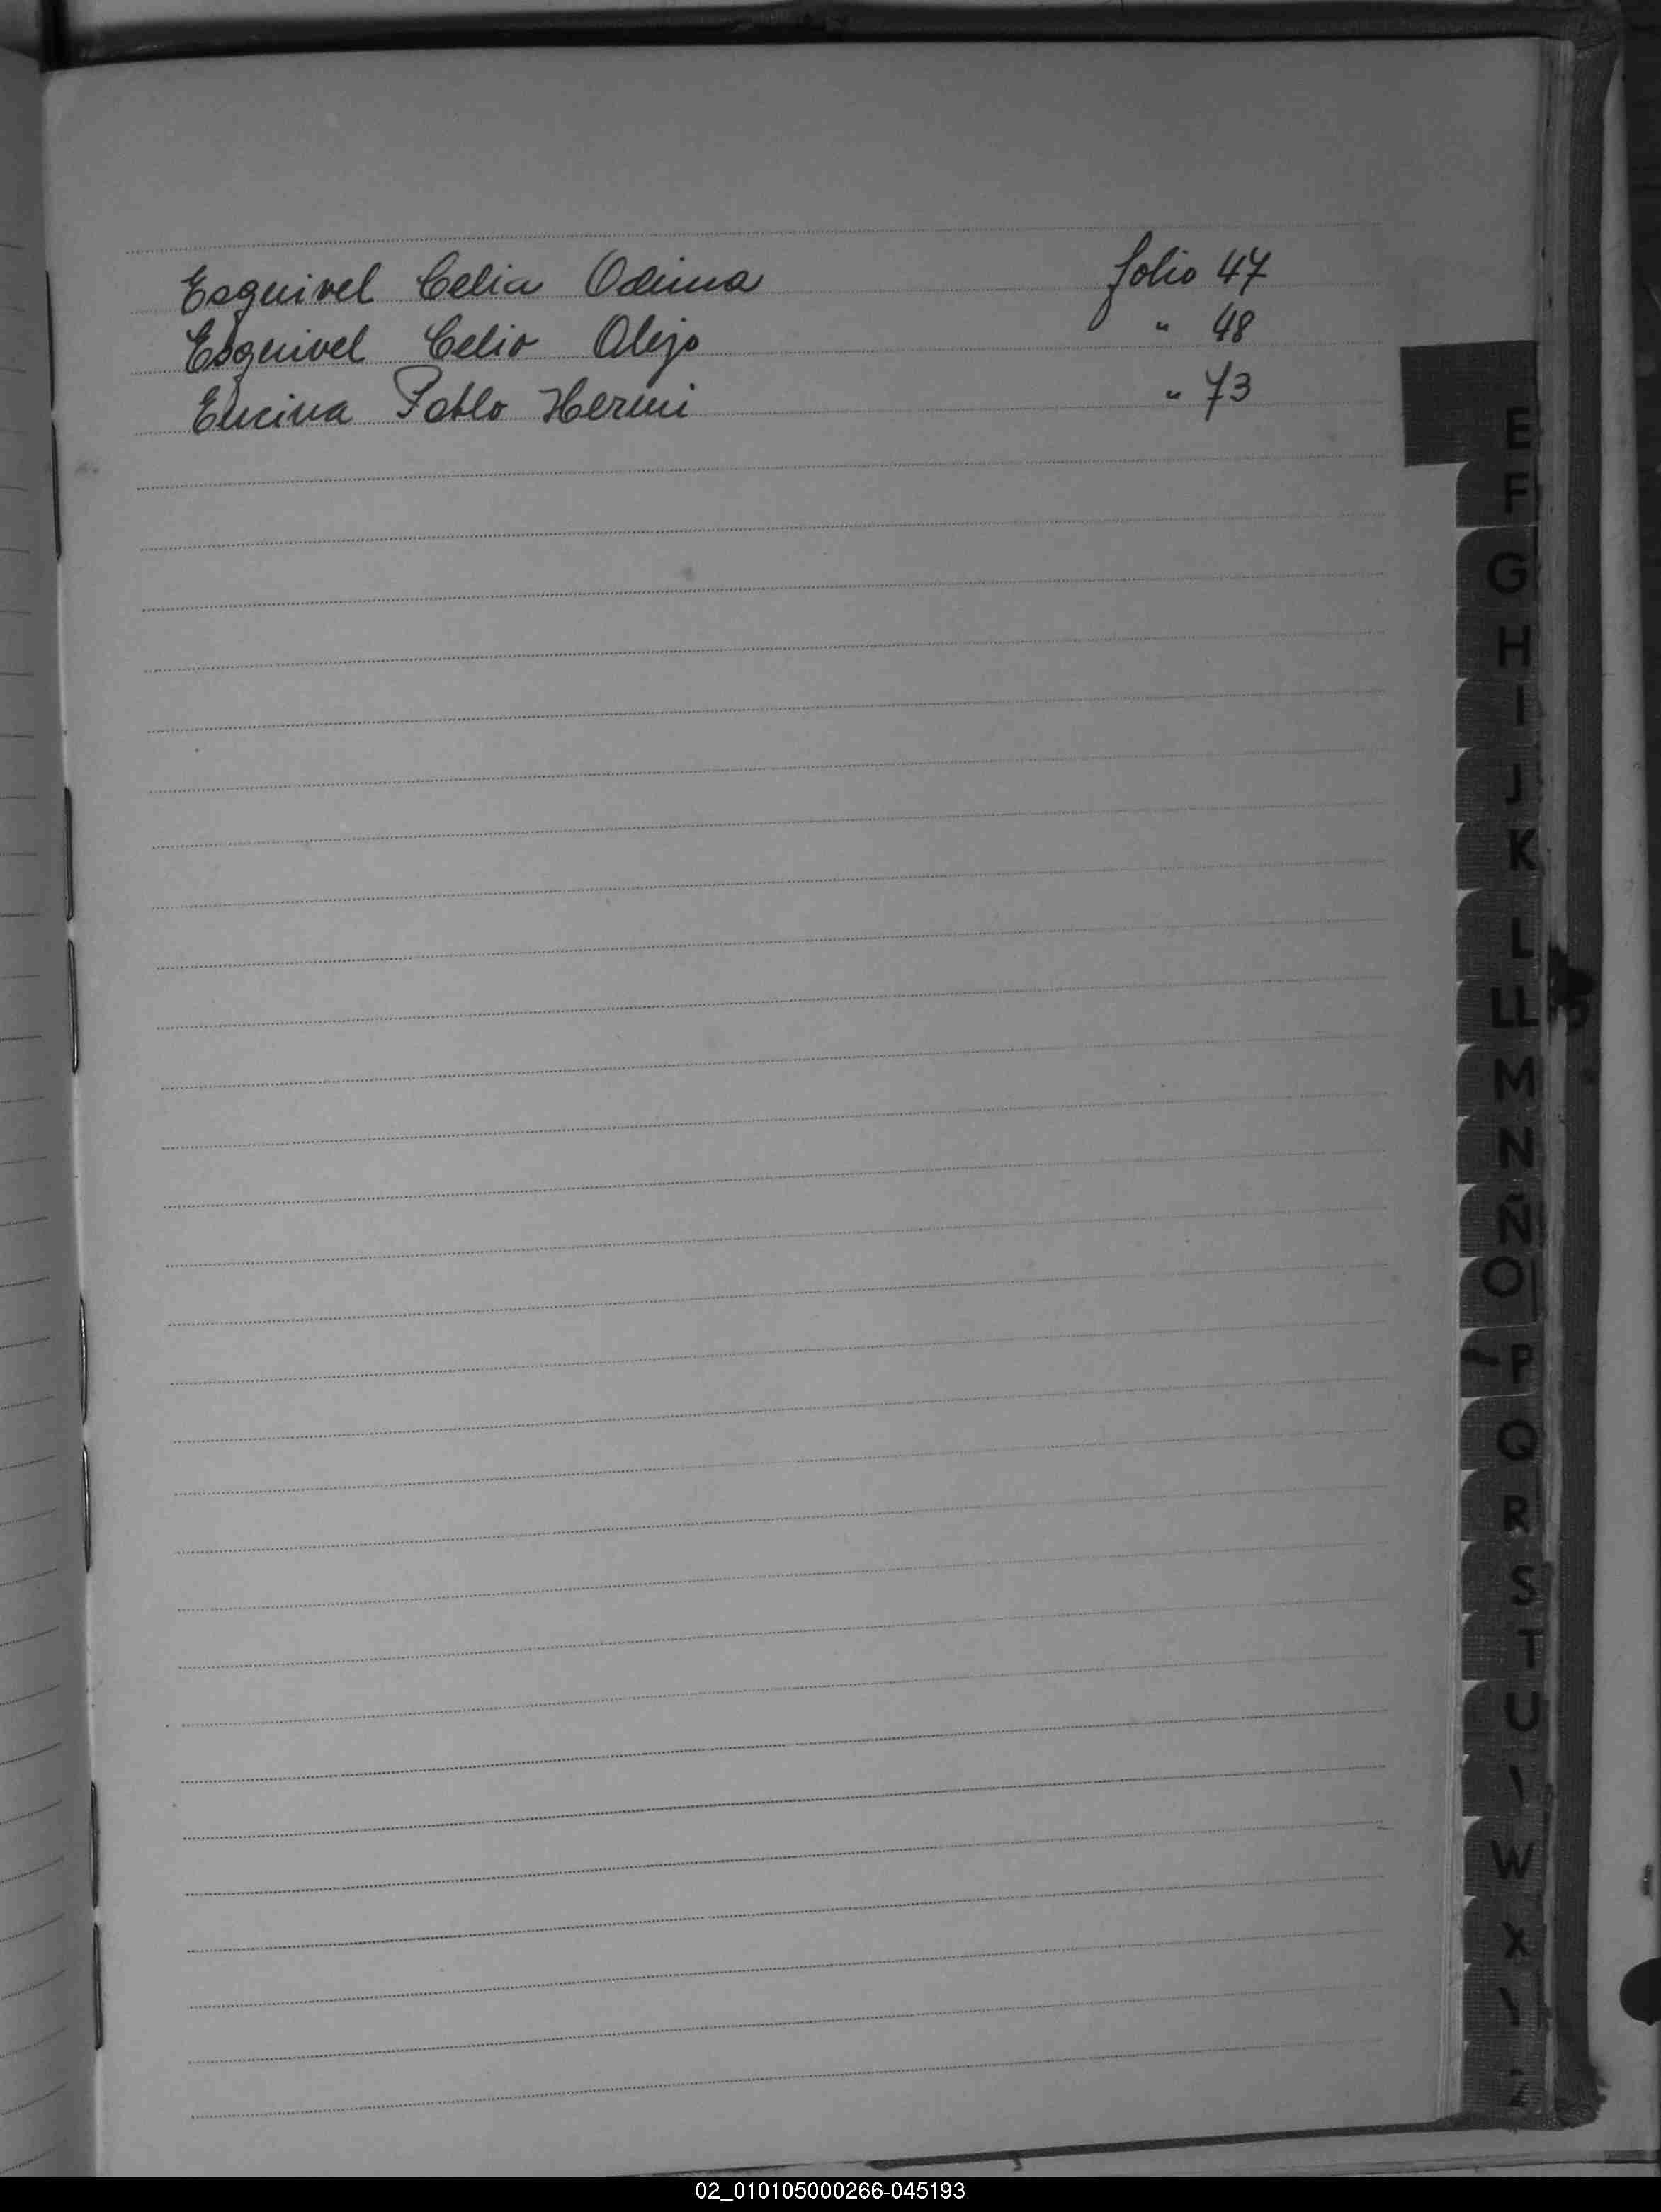 Esquivel Celia Odina folio 47
Esquivel Celio Alejo " 48
Encina Pablo Hermi " 73
E
F
G
H
I
J
K
L
LL
M
N
Ñ
O
P
Q
R
S
T
U
W
X
Z
02_010105000266-045193